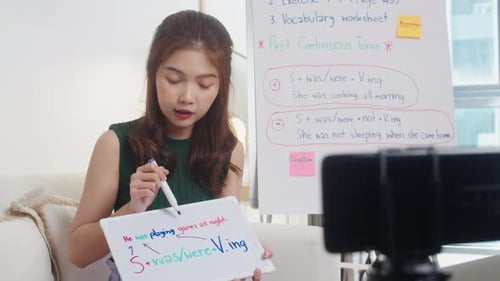 3 Vocabulary worksheet
* Past Continuous Tense *
+ S + was/were + V.ing
She was cooking all morning
- S + was/were + not + V.ing
She was not sleeping when she came home.
He was playing games all night.
S + was/were + V.ing